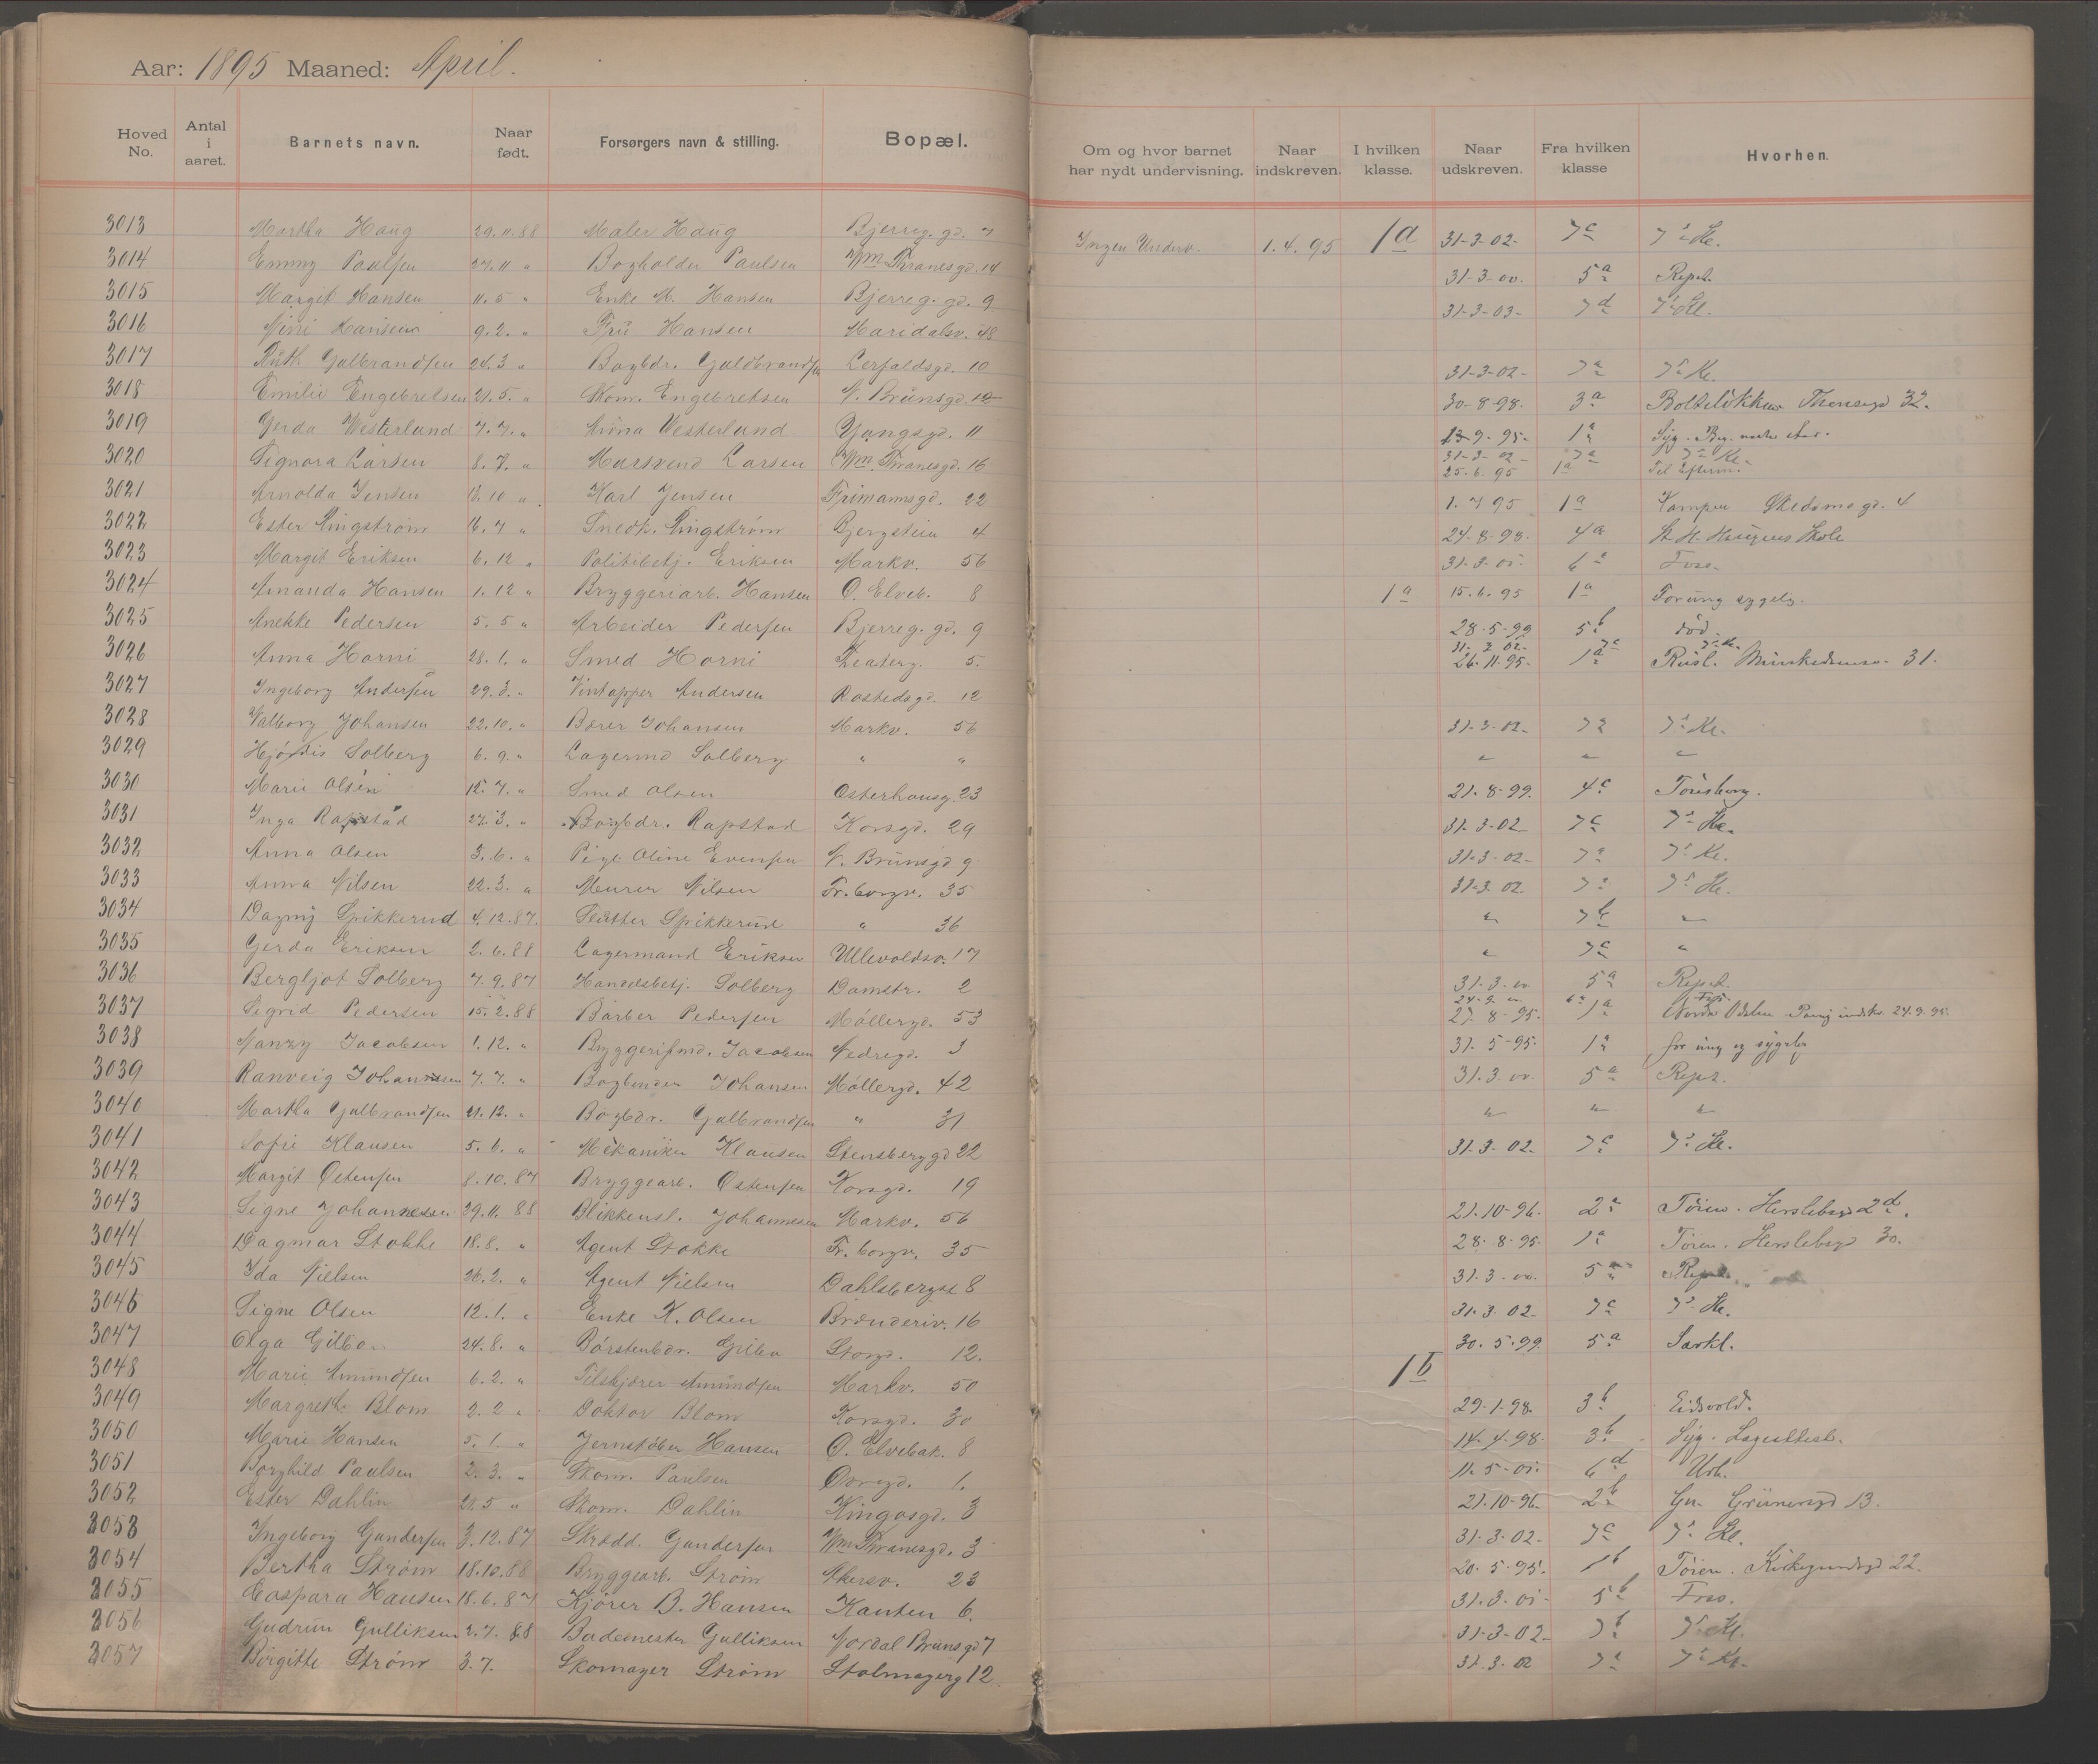 Aar: 1895 Maaned: April.
Hoved No. Antal i aaret. Barnets navn. Naar født. Forsørgers navn & stilling. Bopæl. Om og hvor barnet har nydt undervisning. Naar indskreven. I hvilken klasse. Naar udskreven. Fra hvilken klasse Hvorhen.
3013 Martha Haug 29.11.88 Maler Haug Bjerreg. gd. 7 Ingen Underv. 1.4.95 1a 31-3-02- 7c 7de Kl.
3014 Emmy Paulsen 27.11 " Bogholder Paulsen Wm Thranesgd. 14 31-3-00. 5a Repet.
3015 Margit Hansen 11.5 " Enke M. Hansen Bjerreg. gd. 9 31-3-03- 7d 7de Kl.
3016 Mini Hansen 9.2. " Fru Hansen Maridalsv. 48
3017 Ruth Gulbrandsen 24.3 " Bogbdr. Guldbrandsen Lerfaldsgd. 10 31-3-02- 7a 7de Kl.
3018 Emilie Engebretsen 21.5. " Skom. Engebretsen N. Brünsgd. 12 30-8-98. 3a Bolteløkken Thereseqd 32.
3019 Gerda Westerlund 7.7. " Anna Westerlund Youngsgd. 11 13-9-95- 1a Syg.
3020 Signora Larsen 8.7. " Marsvend Larsen Wm Thranesgd. 16 31-3-02- 7a 7de Kl. 25.6.95 1a
3021 Arnolda Jensen 13.10 " Karl Jensen Frimannsgd. 22 1.7 95 1a Kampen Skedsmogd. 4
3022 Ester Ringstrøm 16.7 " Snedk. Ringstrøm Bjergstien 4 24-8-98. 4a St. H. Haugens Skole
3023 Margit Eriksen 6.12 " Politibetj. Eriksen Markv. 56 31-3-01- 6a Foss.
3024 Amanda Hansen 1.12 " Bryggeriarb. Hansen O. Elveb. 8 1a 15.6.95 1a For ung sygelg.
3025 Anekke Pedersen 5.5 " Arbeider Pedersen Bjerreg. gd. 9 28-5-99 5b død
3026 Anna Horni 28.1. " Smed Horni Teaterg. 5. 31-3-02- 7c 7de Kl. 26.11.95- 1a Rusl. Munkedamsv. 31.
3027 Ingeborg Andersen 29.3. " Vintapper Andersen Rostedsgd. 12
3028 Valborg Johansen 22.10. " Bærer Johansen Markv. 56 31-3-02- 7a 7de Kl.
3029 Hjørdis Solberg 6.9. " Lagermd Solberg " " " " "
3030 Marie Olsen 12.7. " Smed Olsen Osterhausg. 23 21.8-99. 4c Tønsberg.
3031 Inga Rapstad 27.3. " Bogbdr. Rapstad Korsgd. 29 31.3-02- 7c 7de Kl.
3032 Anna Olsen 3.6. " Pige Oline Evensen N. Brünsgd 9 31-3-02- 7a 7de Kl.
3033 Anna Nilsen 22.3. " Murer Nilsen Fr. borgv. 35 31-3.02. 7a 7de Kl.
3034 Dagny Spikkerud 4.12.87. Slagter Spikkerud " 36 " 7b "
3035 Gerda Eriksen 2.6.88 Lagermand Eriksen Ullevoldsv. 17 " 7c "
3036 Bergljot Solberg 7.9.87 Handelsbetj. Solberg Damstr. 2 31-3-00 5a Repet.
3037 Sigrid Pedersen 15.2.88 Barber Pedersen Møllergd. 53 27-8-95- 1a Nordre Odalen indskr. 24.9.95.
3038 Nanny Jacobsen 1.12. " Bryggerifmd. Jacobsen Nedregd. 3 31.5-95. 1a for ung og sygelig
3039 Ranveig Johannsen 7.7. " Bogbinder Johansen Møllergd. 42 31.3.00. 5a Repet.
3040 Martha Gulbrandsen 21.12. " Bogbdr. Gulbrandsen " 31 " " "
3041 Sofie Klausen 5.6. " Mekaniker Klausen Stensberggd 22 31-3-02. 7c 7de Kl.
3042 Margit Ostensen 8.10.87 Bryggearb. Ostensen Korsgd. 19
3043 Signe Johannesen 29.11.88 Blikkensl. Johannesen Markv. 56 21-10-96. 2a Tøien. Herslebsgd 2d.
3044 Dagmar Stokke 18.8. " Agent Stokke Fr. borgv. 35 28.8-95- 1a Tøien. Herslebsgd 30.
3045 Ida Nielsen 26.2. " Agent Nielsen Dahlsbergst 8 31.3.00. 5a Repet.
3046 Signe Olsen 12.1. " Enke K. Olsen Brænneriv. 16 31.3.02- 7c 7de Kl.
3047 Olga Gilbo 24.8. " Børstenbdr. Gilbo Storgd. 12. 30.5.99 5a Sarkl.
3048 Marie Amundsen 6.2. " Amundsen Markv. 50 1b
3049 Margrethe Blom 2.2 " Doktor Blom Korsgd. 30 29.1.98. 3b Eidsvold.
3050 Marie Hansen 5.1. " Jernstøber Hansen O. Elvebak. 8 14.4-98. 3b Syg. Lægeattest.
3051 Borghild Paulsen 2.3. " Skom. Paulsen Overgd. 1. 11.5-01. 6d Urb.
3052 Ester Dahlin 21.5 " Skom. Dahlin Kingosgd. 3 21.10-96. 2b Gr. Grünersgd 13.
3053 Ingeborg Gundersen 3.12.87 Skrædd. Gundersen Wm Thranesgd. 3 31-3-02- 7c 7de Kl.
3054 Bertha Strøm 18.10.88 Bryggearb. Strøm Akersv. 23 20-5-95. 1b Tøien. 22.
3055 Caspara Hansen 18.6.87 Kjører B. Hansen Kanten 6. 31.3.01- 5b Foss.
3056 Gudrun Gulliksen 2.7.88 Bademester Gulliksen Nordal Brunsgd 7 31-3-02- 7b 7de Kl.
3057 Birgitte Strøm 3.7. Skomager Strøm Stolmagerg 12 31.3.02 7a 7de Kl.